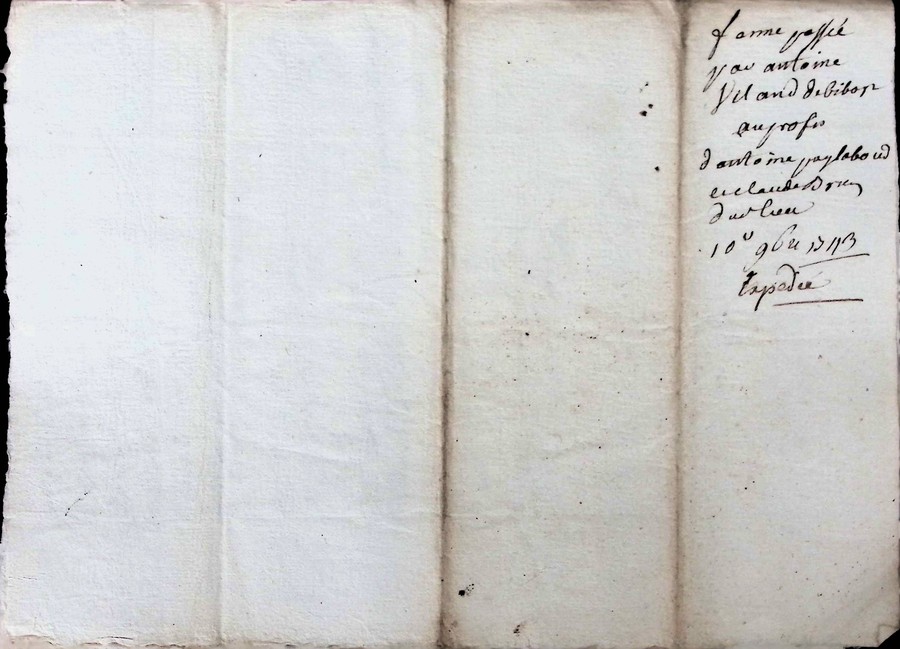 ferme passée
par antoine
Vil and de bibost
au profit
d'antoine pays laboud
et claude Bru
dud lieu
10e 9bre 1743
Expediée